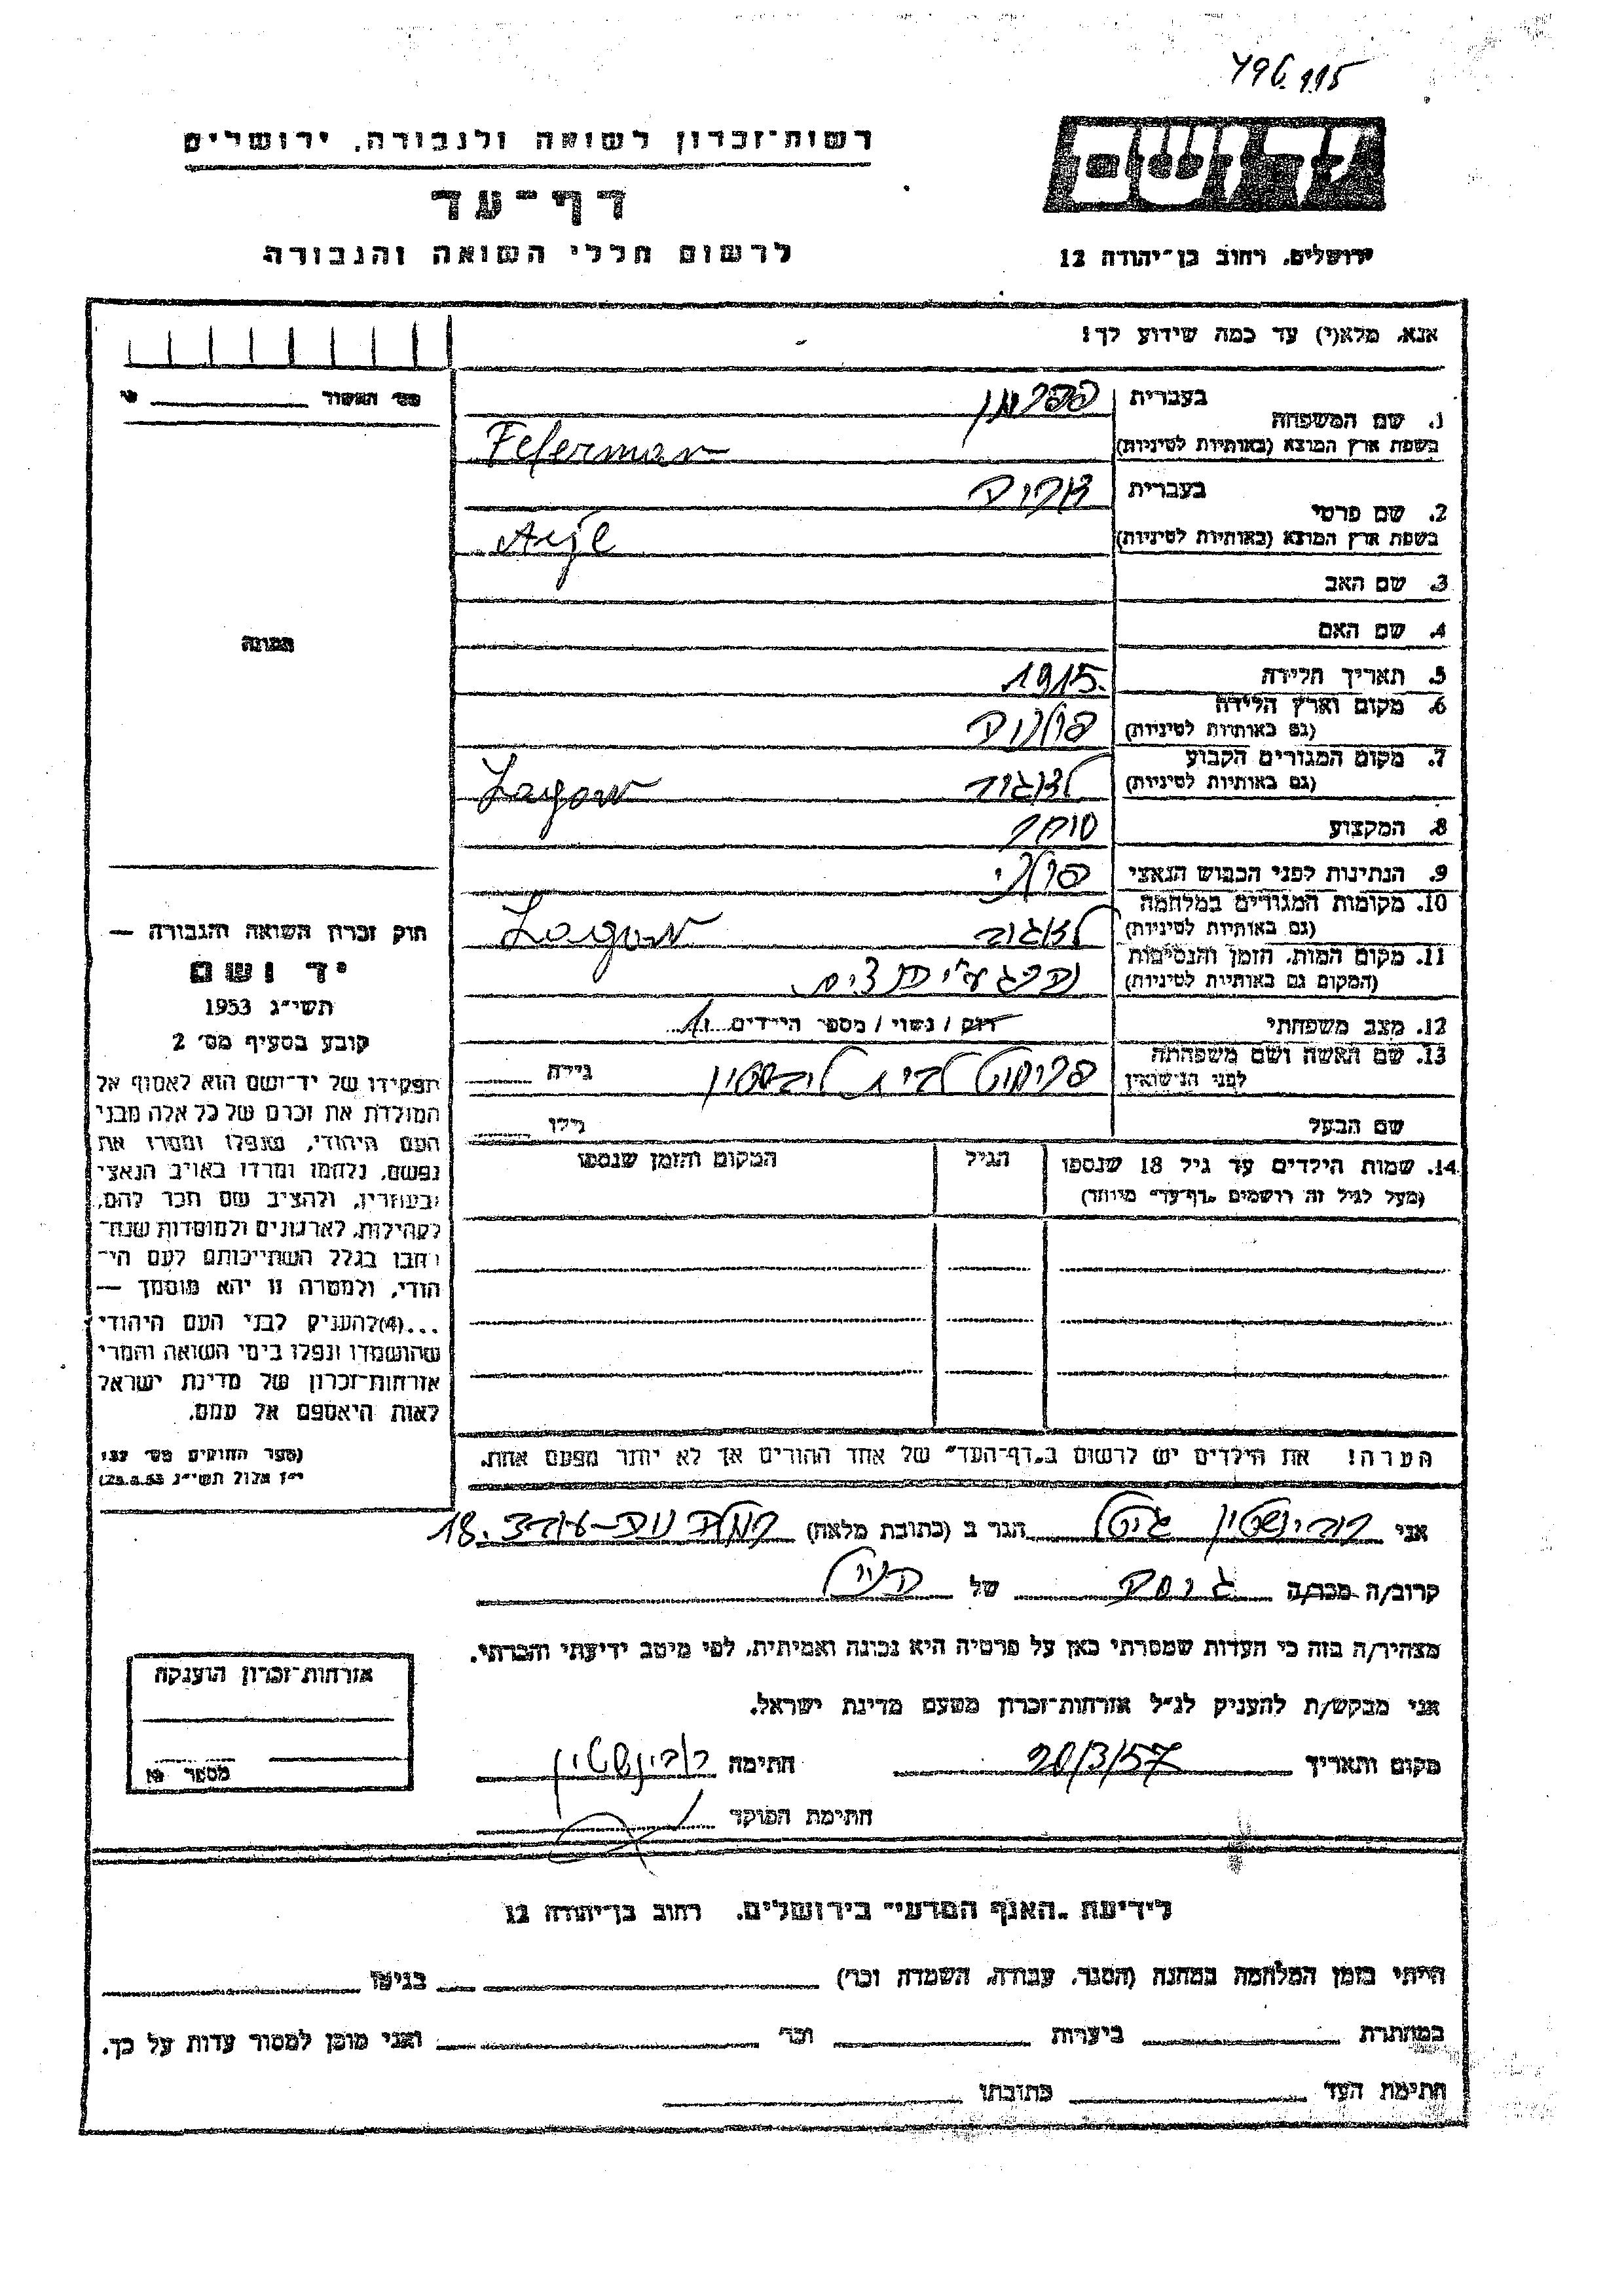 496.915
יד ושם
רשות־זכרון לשואה ולגבורה, ירושלים
דף־עד
לרשום חללי השואה והגבורה
ירושלים, רחוב בן־יהודה 12
אנא, מלא(י) עד כמה שידוע לך:
1. שם המשפחה
בעברית
בשפת ארץ המוצא (באותיות לטיניות)
Feferman
2. שם פרטי
בעברית
בשפת ארץ המוצא (באותיות לטיניות)
3. שם האב
4. שם האם
5. תאריך הלידה 1915.
6. מקום וארץ הלידה
(גם באותיות לטיניות)
7. מקום המגורים הקבוע
(גם באותיות לטיניות) Lagow
8. המקצוע סוחר
9. הנתינות לפני הכבוש הנאצי פולני
10. מקומות המגורים במלחמה
(גם באותיות לטיניות) Lagow
11. מקום המות, הזמן והנסיבות
(המקום גם באותיות לטיניות)
12. מצב משפחתי רווק / נשוי / מספר הילדים 1
13. שם האשה ושם משפחתה
לפני הנישואין
גילה
שם הבעל
גילו
14. שמות הילדים עד גיל 18 שנספו
(מעל לגיל זה רושמים „דף־עד" מיוחד)
הגיל
המקום והזמן שנספו
הערה: את הילדים יש לרשום ב„דף־העד" של אחד ההורים אך לא יותר מפעם אחת.
תמונה
חוק זכרון השואה והגבורה —
יד ושם
תשי״ג 1953
קובע בסעיף מס׳ 2
תפקידו של יד־ושם הוא לאסוף אל
המולדת את זכרם של כל אלה מבני
העם היהודי, שנפלו ומסרו את
נפשם, נלחמו ומרדו באויב הנאצי
ובעוזריו, ולהציב שם וזכר להם,
לקהילות, לארגונים ולמוסדות שנח־
רבו בגלל השתייכותם לעם הי־
הודי, ולמטרה זו יהא מוסמך —
...(4)להעניק לבני העם היהודי
שהושמדו ונפלו בימי השואה והמרי
אזרחות־זכרון של מדינת ישראל
לאות היאספם אל עמם.
(ספר החוקים מס׳ 132
י״ז אלול תשי״ג 28.8.53)
אני רובינשטין הגר ב (כתובת מלאה) 18.
קרוב/ה מכר/ה של
מצהיר/ה בזה כי העדות שמסרתי כאן על פרטיה היא נכונה ואמיתית, לפי מיטב ידיעתי והכרתי.
אני מבקש/ת להעניק לנ״ל אזרחות־זכרון מטעם מדינת ישראל.
מקום ותאריך 20/3/57 חתימה רובינשטין
חתימת הפוקד
אזרחות־זכרון הוענקה
מספר
לידיעת „האגף המדעי" בירושלים, רחוב בן־יהודה 12
הייתי בזמן המלחמה במחנה (הסגר, עבודה, השמדה וכו׳) בגיטו
במחתרת ביערות וכו׳ ואני מוכן למסור עדות על כך.
חתימת העד כתובתו